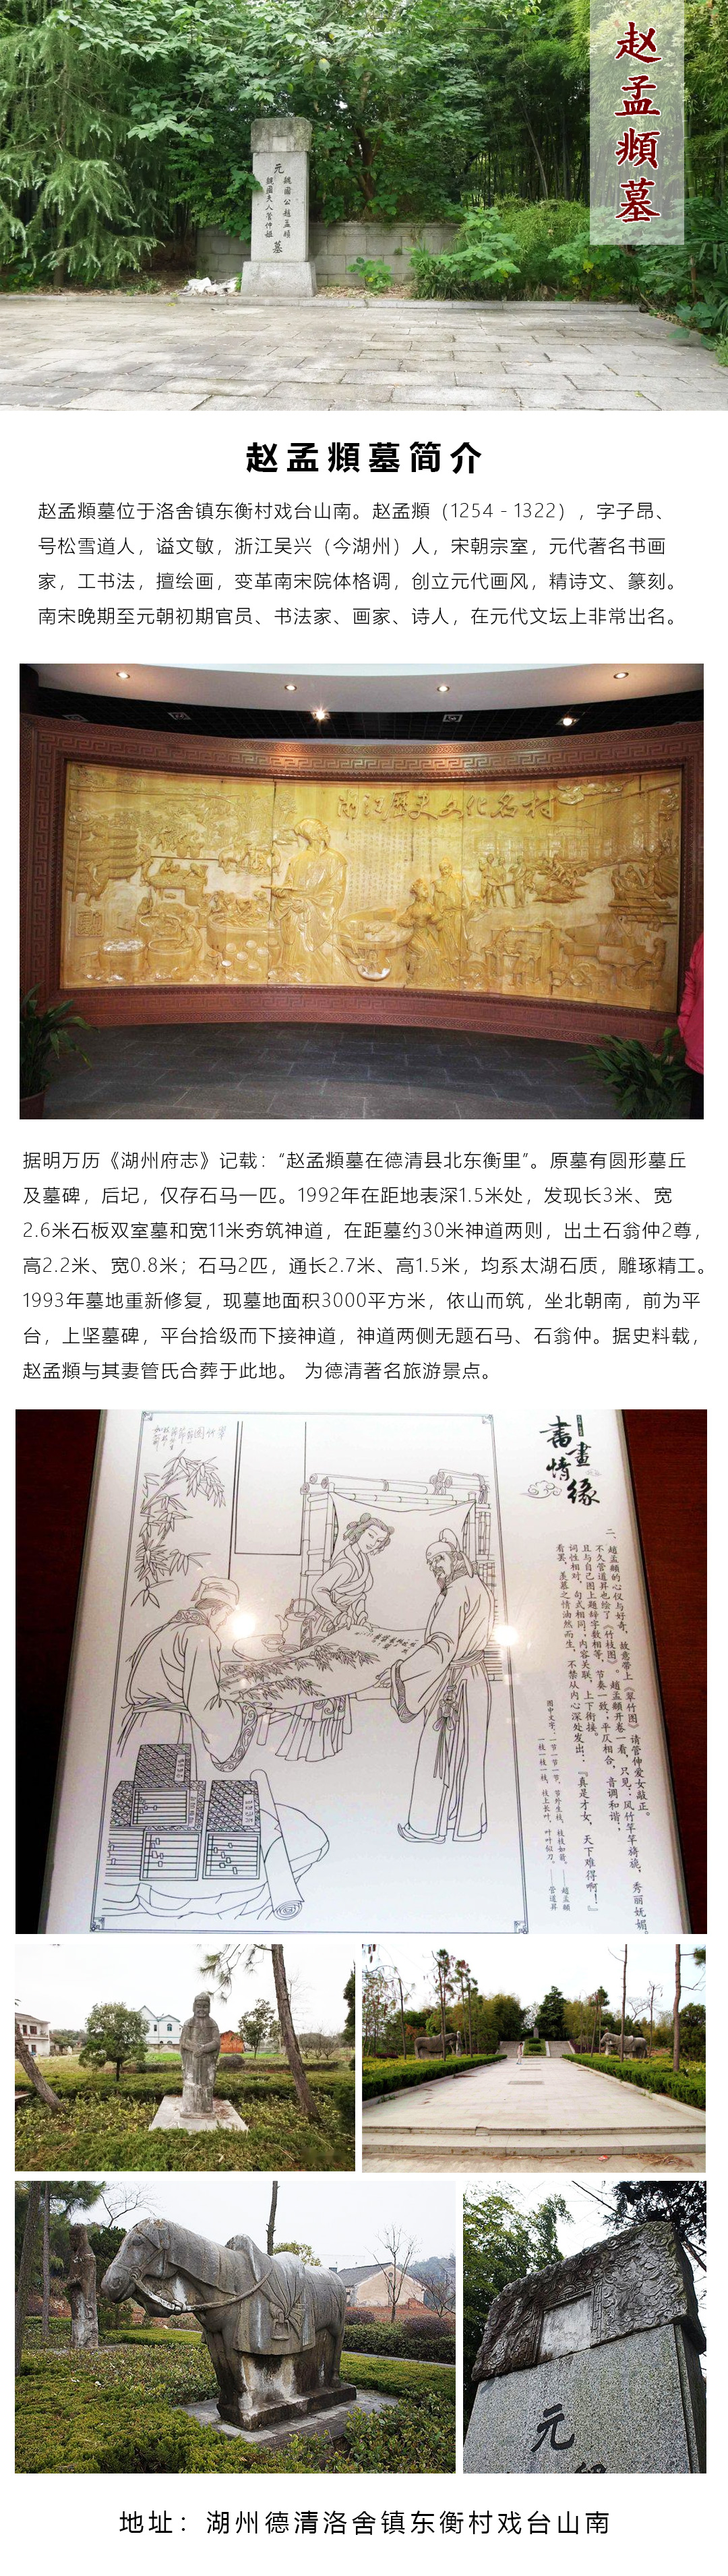 赵孟頫墓
元
魏國公趙孟頫
魏國夫人管仲姬
墓
赵孟頫墓简介
赵孟頫墓位于洛舍镇东衡村戏台山南。赵孟頫（1254 - 1322），字子昂、
号松雪道人，谥文敏，浙江吴兴（今湖州）人，宋朝宗室，元代著名书画
家，工书法，擅绘画，变革南宋院体格调，创立元代画风，精诗文、篆刻。
南宋晚期至元朝初期官员、书法家、画家、诗人，在元代文坛上非常出名。
浙江歷史文化名村
据明万历《湖州府志》记载：“赵孟頫墓在德清县北东衡里”。原墓有圆形墓丘
及墓碑，后圮，仅存石马一匹。1992年在距地表深1.5米处，发现长3米、宽
2.6米石板双室墓和宽11米夯筑神道，在距墓约30米神道两则，出土石翁仲2尊，
高2.2米、宽0.8米；石马2匹，通长2.7米、高1.5米，均系太湖石质，雕琢精工。
1993年墓地重新修复，现墓地面积3000平方米，依山而筑，坐北朝南，前为平
台，上坚墓碑，平台拾级而下接神道，神道两侧无题石马、石翁仲。据史料载，
赵孟頫与其妻管氏合葬于此地。 为德清著名旅游景点。
書畫情缘
二、趙孟頫的心仪与好奇，故意带上《翠竹图》请管仲爱女敲正。
不久管道昇也绘了《竹枝图》。趙孟頫开卷一看，只见：风竹竿竿旖旎，秀丽妩媚。
且与自己图上题辞字数相等，节奏一致；平仄相合，音调和谐；
词性相对，句式相同；内容关联，上下衔接。
看罢，羡慕之情油然而生，不禁从内心深处发出：『真是才女，天下难得啊！』
图中文字：一节一节一节，节外生枝，枝枝如箭。——趙孟頫
一枝一枝一枝，枝上长叶，叶叶似刀。——管道昇
元
地址：湖州德清洛舍镇东衡村戏台山南